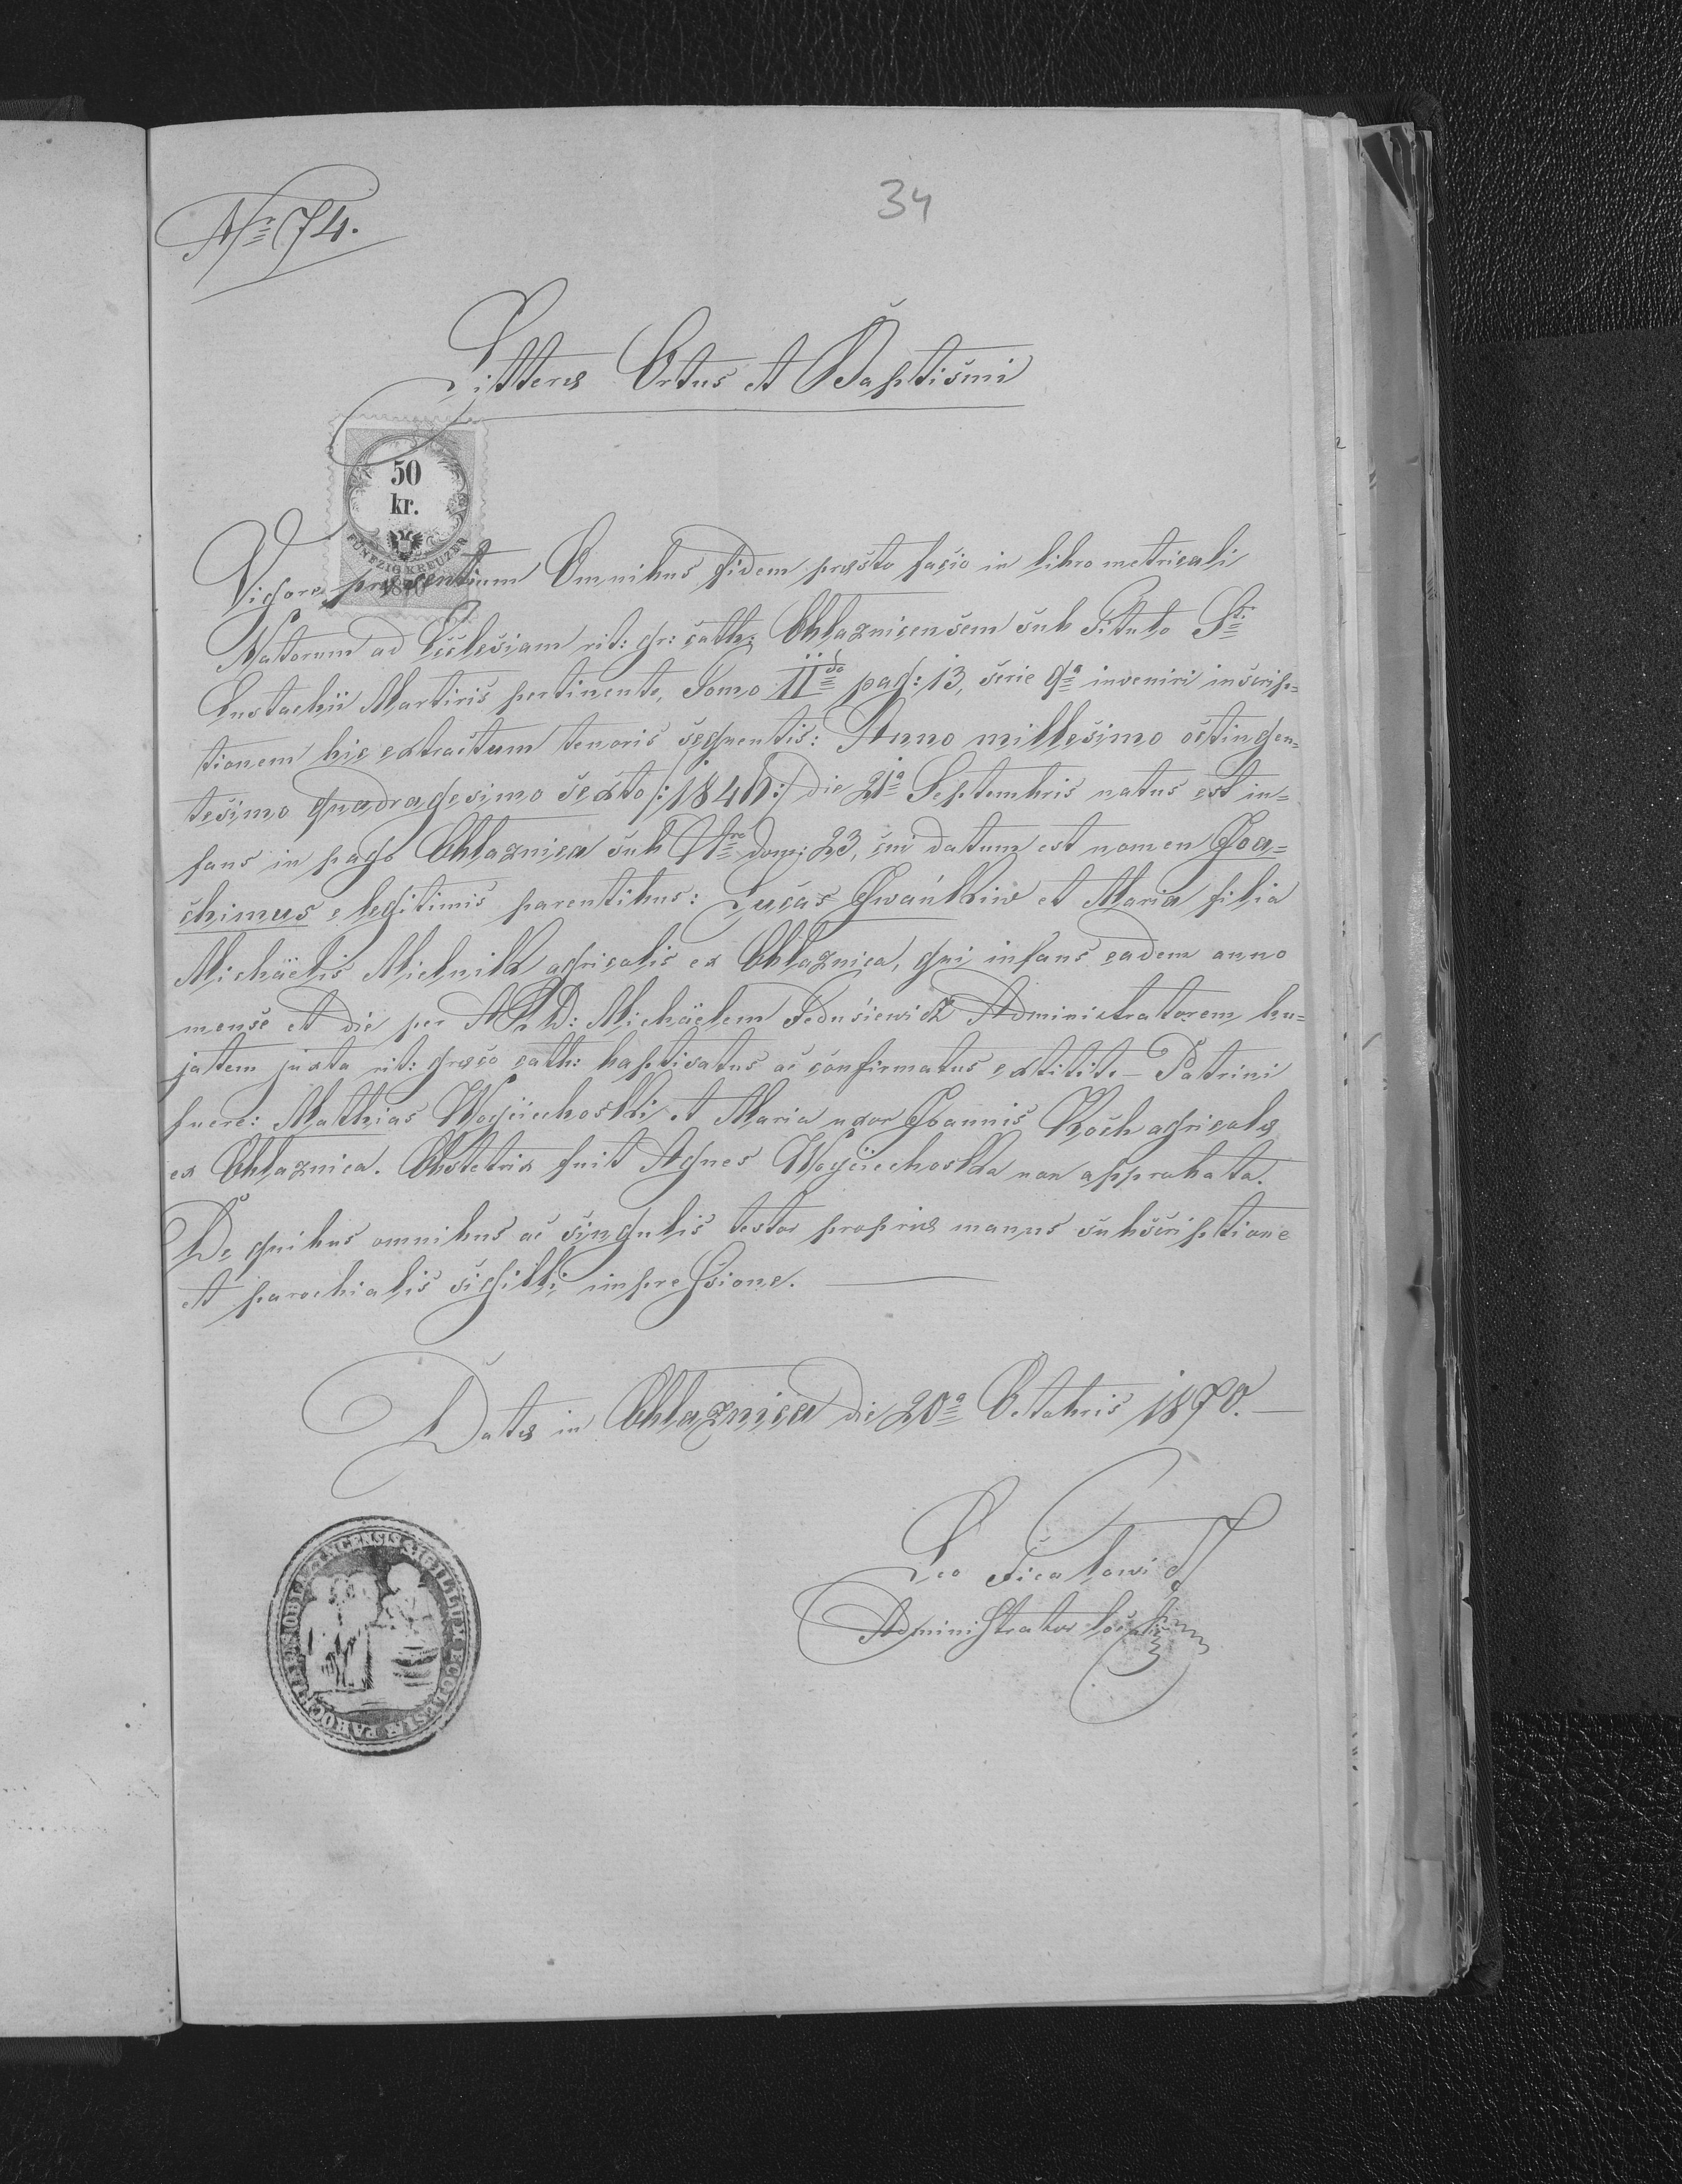 34
Nr 74.
Litteræ Ortus et Baptismi
50
kr.
FÜNFZIG KREUZER
1870
Vigore præsentium Omnibus fidem præsto facio in libro metricali
Natorum ad Ecclesiam rit: gr: cath: Obłaznicensem sub Titulo Sti
Eustachii Martiris pertinente, Tomo IIdo pag: 13, serie 9a inveniri inscrip=
tionem hic extractum tenoris sequentis: Anno millesimo octingen=
tesimo quadragesimo sexto /:1846:/ die 21a Septembris natus est in=
fans in pago Obłaznica sub Nro dom: 23, cui datum est nomen Joa=
chimus e legitimis parentibus: Lucas Iwańkiw et Maria filia
Michäelis Mielnik agricolis ex Obłaznica, qui infans eadem anno
mense et die per A. R. D: Michäelem Fedusiewicz Administratorem hu=
jatem juxta rit: græco cath: baptisatus ac confirmatus extitit. – Patrini
fuere: Mathias Woyciechoski et Maria uxor Joannis Koch agricolæ
ex Obłaznica. Obstetrix fuit Agnes Woyciechoska non approbata.
De quibus omnibus ac singulis testor propriæ manus subscriptione
et parochialis sigilli impressione.
Datæ in Obłaznica die 20a Octobris 1870.
Leo
Administrator
SIGILLUM ECCLESIÆ PAROCHIALIS